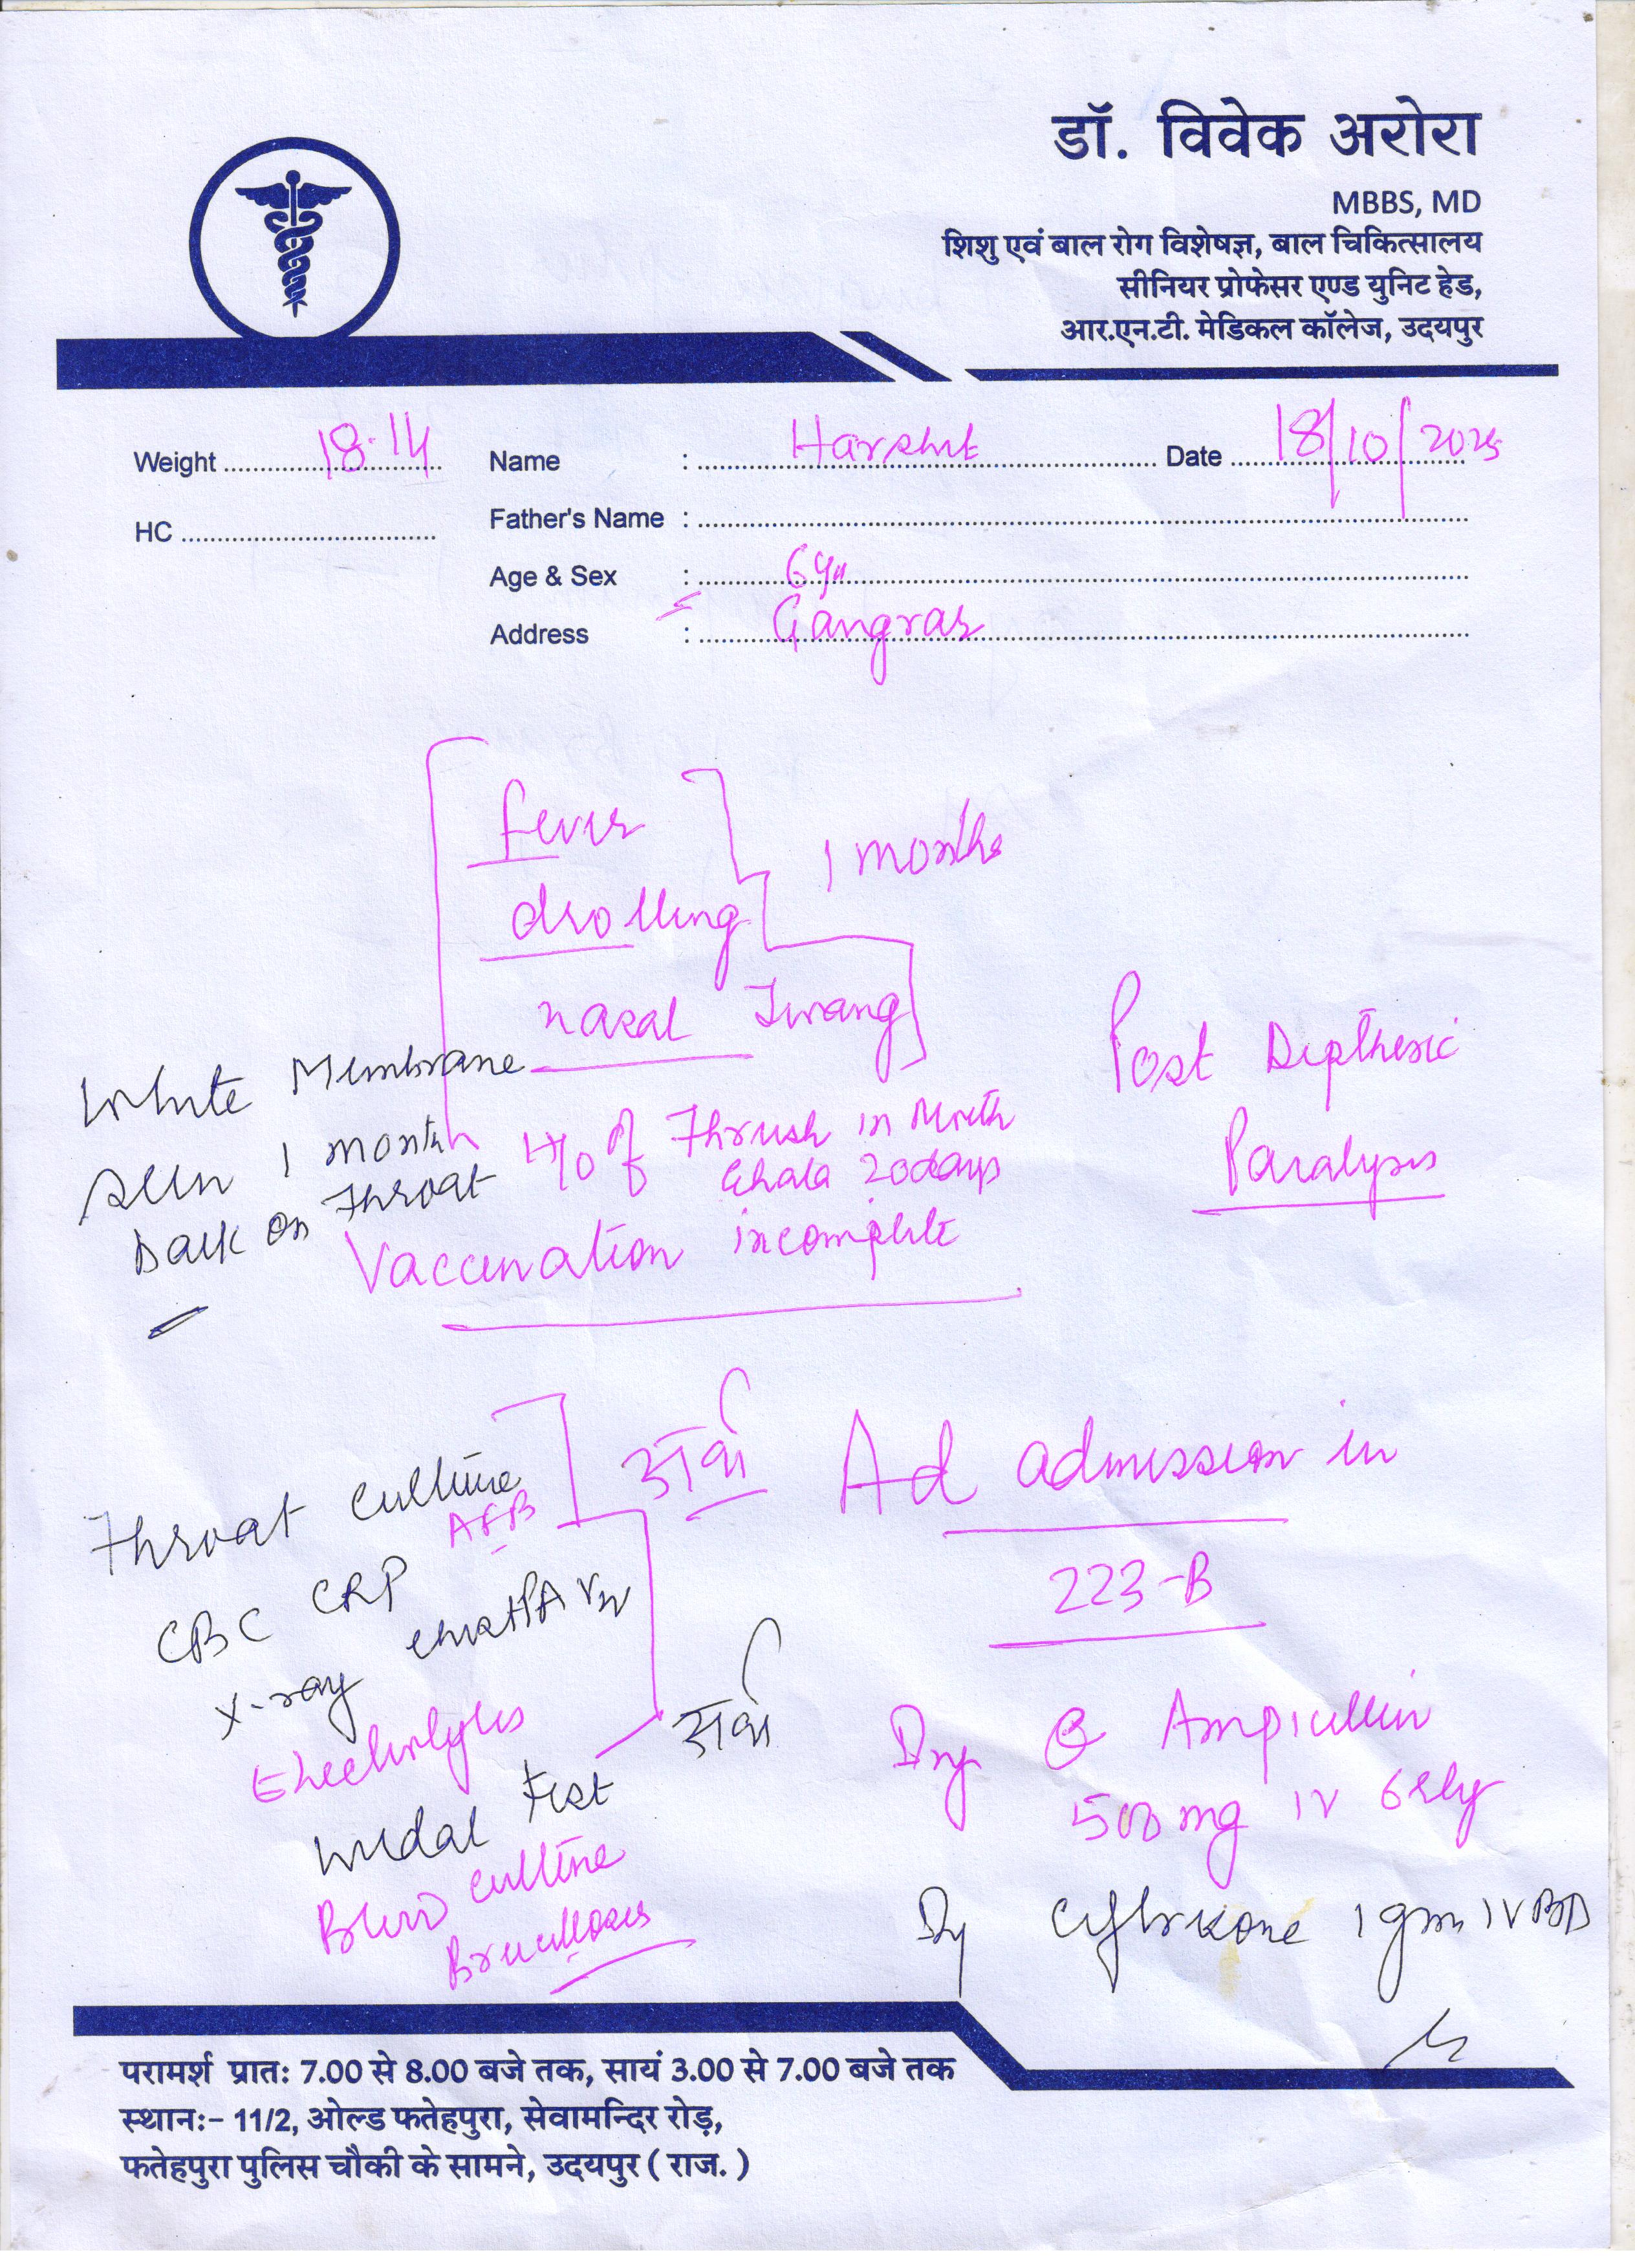 डॉ. विवेक अरोरा
MBBS, MD
शिशु एवं बाल रोग विशेषज्ञ, बाल चिकित्सालय
सीनियर प्रोफेसर एण्ड युनिट हेड,
आर.एन.टी. मेडिकल कॉलेज, उदयपुर
Weight 18.14 Name : Harshit Date 18/10/2025
HC Father's Name :
Age & Sex : 6yr
Address : Gangrar
fever
drolling
1 months
nasal Twang
White Membrane
seen 1 month
back on Throat
H/o of Thrush in Mouth
20days
Vaccination incomplete
Post Diptheric
Paralysis
Throat culture
AFB
CBC CRP
X-ray chest PA
Electrolytes
Widal Test
Blood culture
Brucellosis
Ad admission in
223-B
Ampicillin
500 mg IV 6hly
1gm IV BD
परामर्श प्रातः 7.00 से 8.00 बजे तक, सायं 3.00 से 7.00 बजे तक
स्थानः- 11/2, ओल्ड फतेहपुरा, सेवामन्दिर रोड़,
फतेहपुरा पुलिस चौकी के सामने, उदयपुर ( राज. )